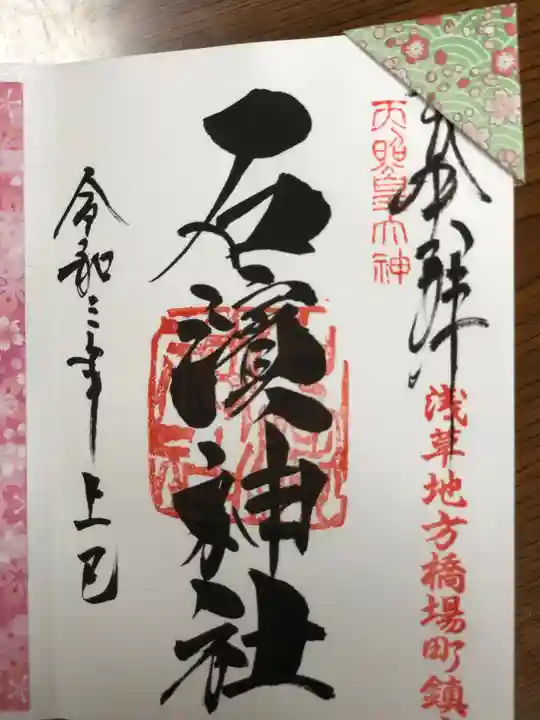 奉拝
天照皇大神
浅草地方橋場町鎮
石濱神社
令和三年 上巳